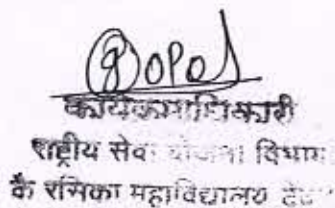 कार्यक्रमाधिकारी
राष्ट्रीय सेवा योजना विभाग
कै रसिका महाविद्यालय